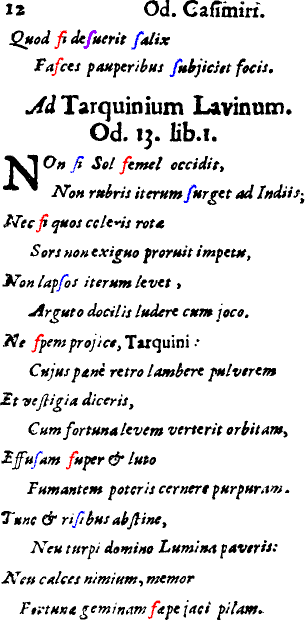 12 Od. Casimiri.
Quod si desuerit salix
Fasces pauperibus subjiciet focis.
Ad Tarquinium Lavinum.
Od. 13. lib.1.
NOn si Sol semel occidit,
Non rubris iterum surget ad Indiis;
Nec si quos celeris rotæ
Sors non exiguo proruit impetu,
Non lapsos iterum levet,
Arguto docilis ludere cum joco.
Ne spem projice, Tarquini:
Cujus panè retro lambere pulverem
Et vestigia diceris,
Cum fortuna levem verterit orbitam,
Effusam super & luto
Fumantem poteris cernere purpuram.
Tunc & risibus abstine,
Neu turpi domino Lumina paveris:
Neu calces nimium, memor
Fortunæ geminam sæpe jaci pilam.